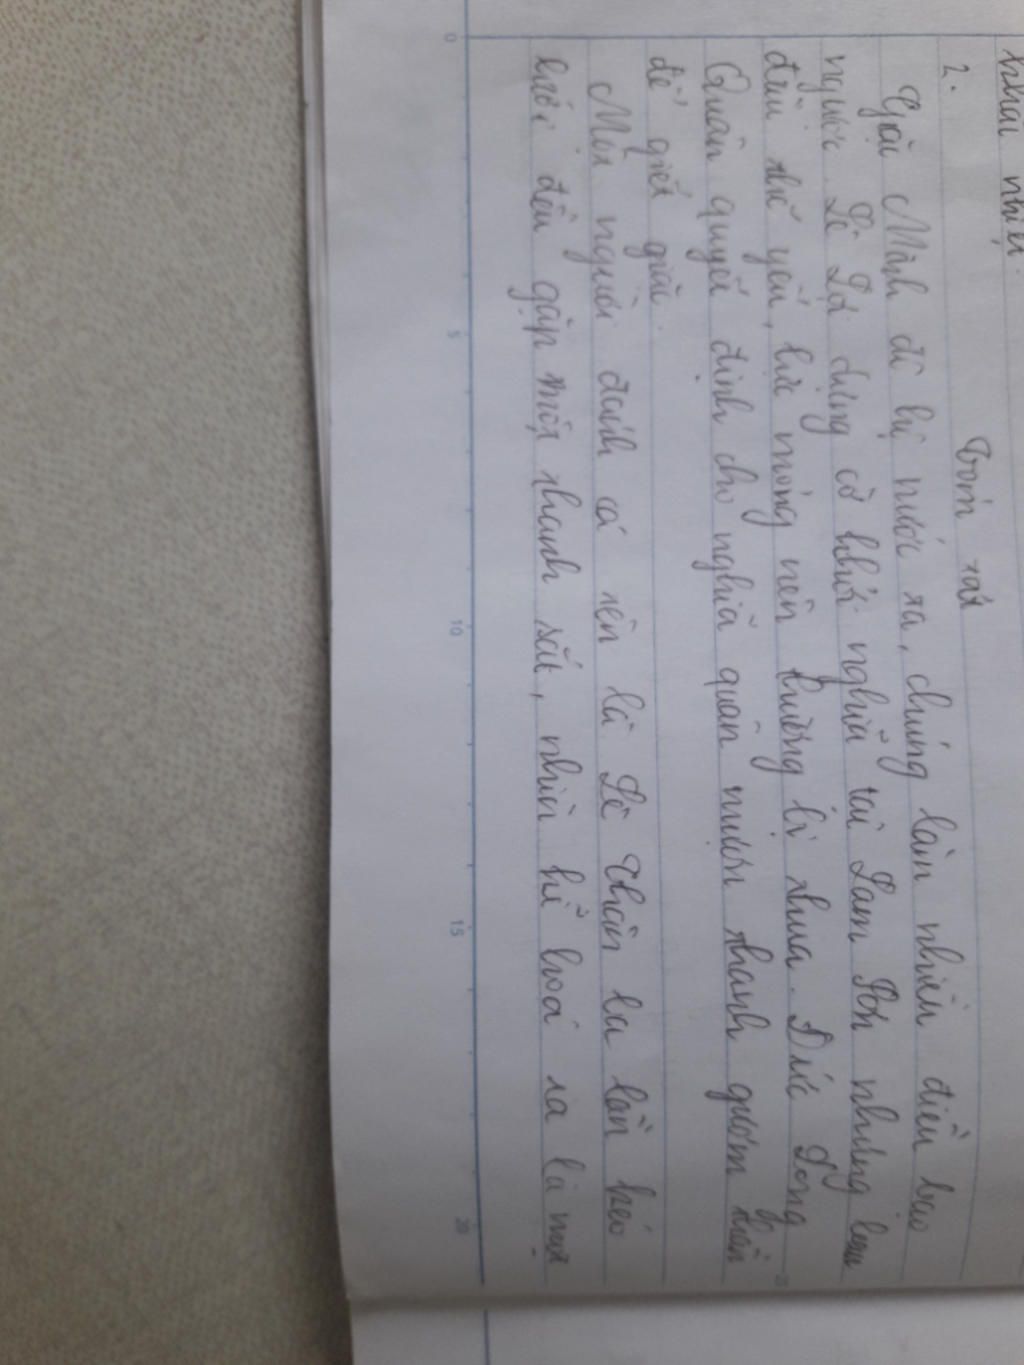 khai nhiệt.
2. Tóm tắt
Giặc Minh đi hị nước ra, chúng làn nhiều điều bạo
ngược. Lê Lợi dựng cờ khởi nghĩa tại Lam Sơn nhưng
đầu thế yếu, lực mỏng nên thường bị thua. Đức Long
Quân quyết định cho nghĩa quân mượn thanh gươm thần
để giết giặc.
Một người đánh cá tên là Lê Thận ba lần kéo
lưới đều gặp một thanh sắt, nhìn kĩ hoá ra là một
0 5 10 15 20